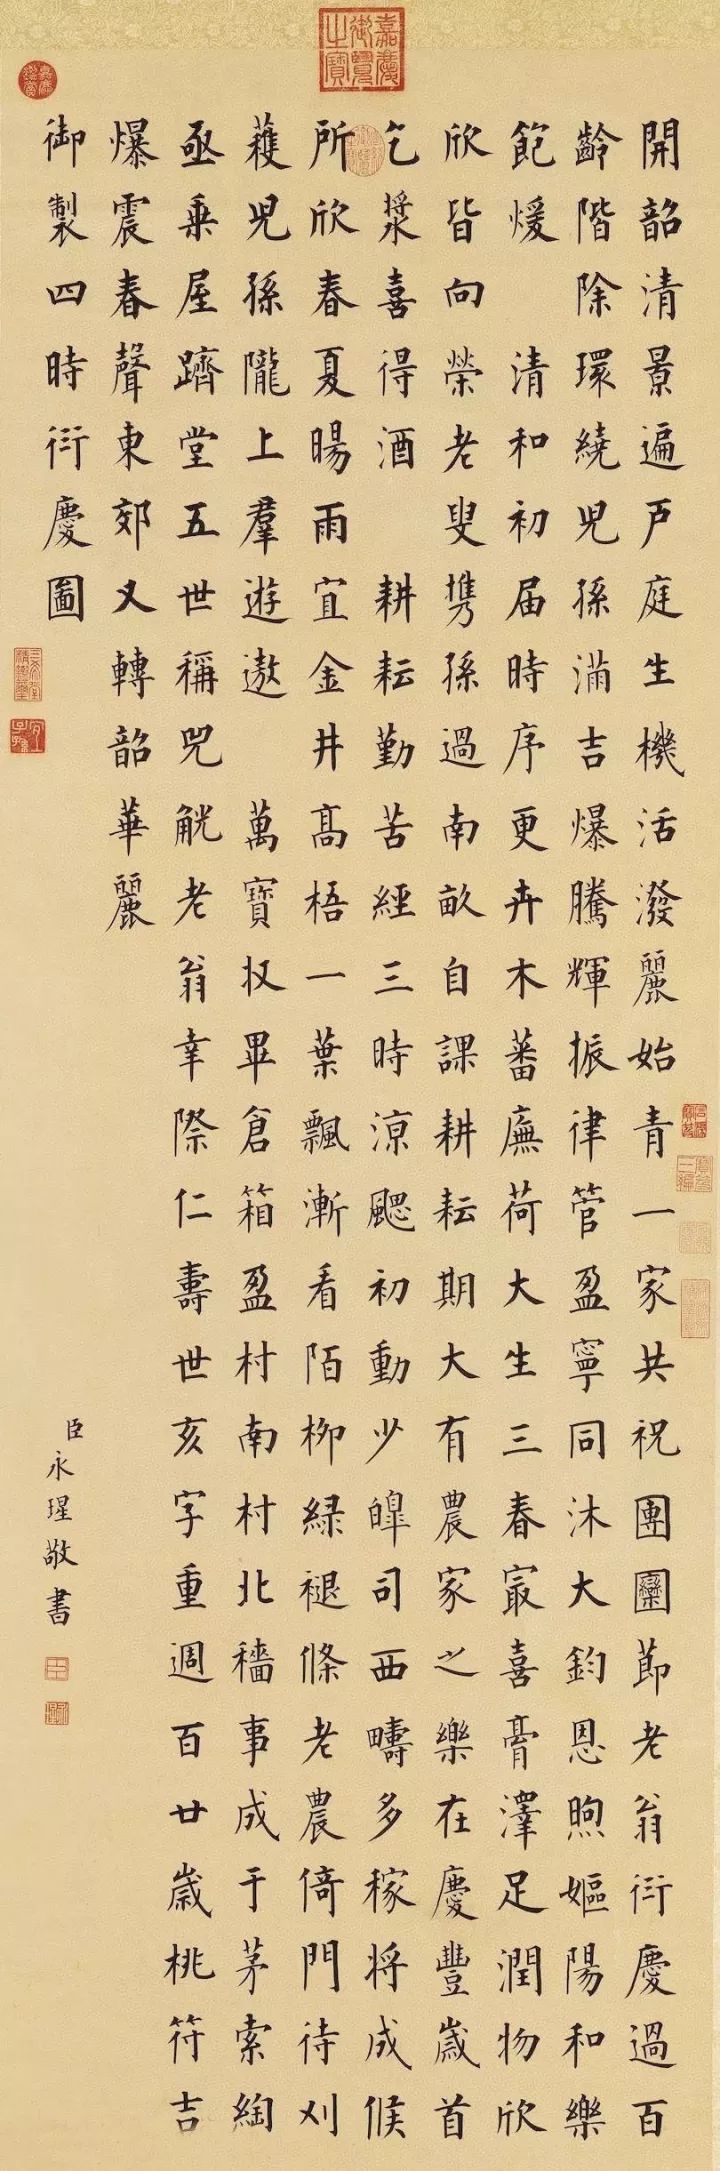 嘉慶御覽之寶
開韶清景遍戶庭生機活潑麗始青一家共祝團圞節老翁衍慶過百
齡階除環繞兒孫滿吉爆騰輝振律管盈寧同沐大鈞恩煦嫗陽和樂
飽煖 清和初届時序更卉木蕃廡荷大生三春㝡喜膏澤足潤物欣
欣皆向榮老叟携孫過南畝自課耕耘期大有農家之樂在慶豐歲首
乞漿喜得酒 耕耘勤苦經三時涼颸初動少皥司西疇多稼將成候
所欣春夏暘雨宜金井高梧一葉飄漸看陌柳綠褪條老農倚門待刈
穫兒孫隴上羣遊遨 萬寶収畢倉箱盈村南村北穡事成于茅索綯
亟乗屋躋堂五世稱兕觥老翁幸際仁壽世亥字重週百廿歲桃符吉
爆震春聲東郊又轉韶華麗
御製四時衍慶圖
臣永瑆敬書
嘉慶鑑賞
三希堂精鑑璽
宜子孫